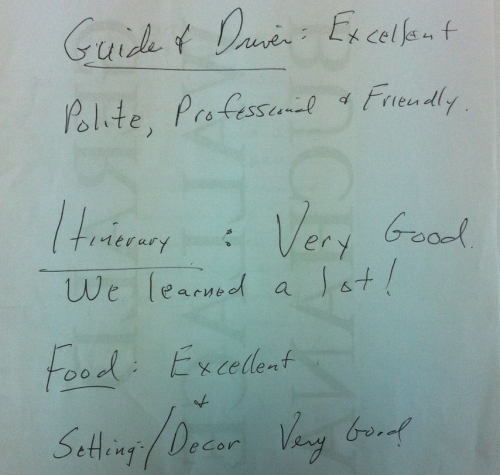 Guide & Driver: Excellent
Polite, Professional & Friendly.
Itinerary : Very Good.
We learned a lot!
Food: Excellent
&
Setting:/Decor Very Good